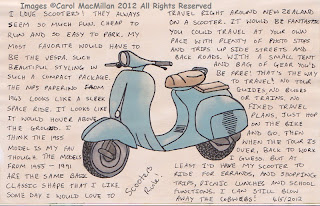 Images @Carol MacMillan 2012 All Rights Reserved
I LOVE SCOOTERS! THEY ALWAYS
SEEM SO MUCH FUN. CHEAP TO
RUN AND SO EASY TO PARK. MY
MOST FAVORITE WOULD HAVE TO
BE THE VESPA. SUCH
BEAUTIFUL STYLING IN
SUCH A COMPACT PACKAGE.
THE MP5 PAPERINO FROM
1943 LOOKS LIKE A SLEEK
SPACE RIDE. IT LOOKS LIKE
IT WOULD HOVER ABOVE
THE GROUND. I
THINK THE 1955
MODEL IS MY FAV
THOUGH. THE MODELS
FROM 1955 - 1991
ARE THE SAME BASIC
CLASSIC SHAPE THAT I LIKE.
SOME DAY I WOULD LOVE TO
TRAVEL RIGHT AROUND NEW ZEALAND
ON A SCOOTER. IT WOULD BE FANTASTIC.
YOU COULD TRAVEL AT YOUR OWN
PACE WITH PLENTY OF PHOTO STOPS
AND TRIPS UP SIDE STREETS AND
BACK ROADS. WITH A SMALL TENT
AND BAG OF GEAR YOU'D
BE FREE! THAT'S THE WAY
TO TRAVEL! NO TOUR
GUIDES NO BUSES
OR TRAINS. NO
FIXED TRAVEL
PLANS, JUST HOP
ON THE BIKE
AND GO. THEN
WHEN THE TOUR IS
OVER, BACK TO WORK
I GUESS. BUT AT
LEAST I'D HAVE MY SCOOTER TO
RIDE FOR ERRANDS, AND SHOPPING
TRIPS, PICNIC LUNCHES AND SCHOOL
FUNCTIONS. I CAN STILL BLOW
AWAY THE COBWEBS! 6/5/2012
Scooters
Rule!